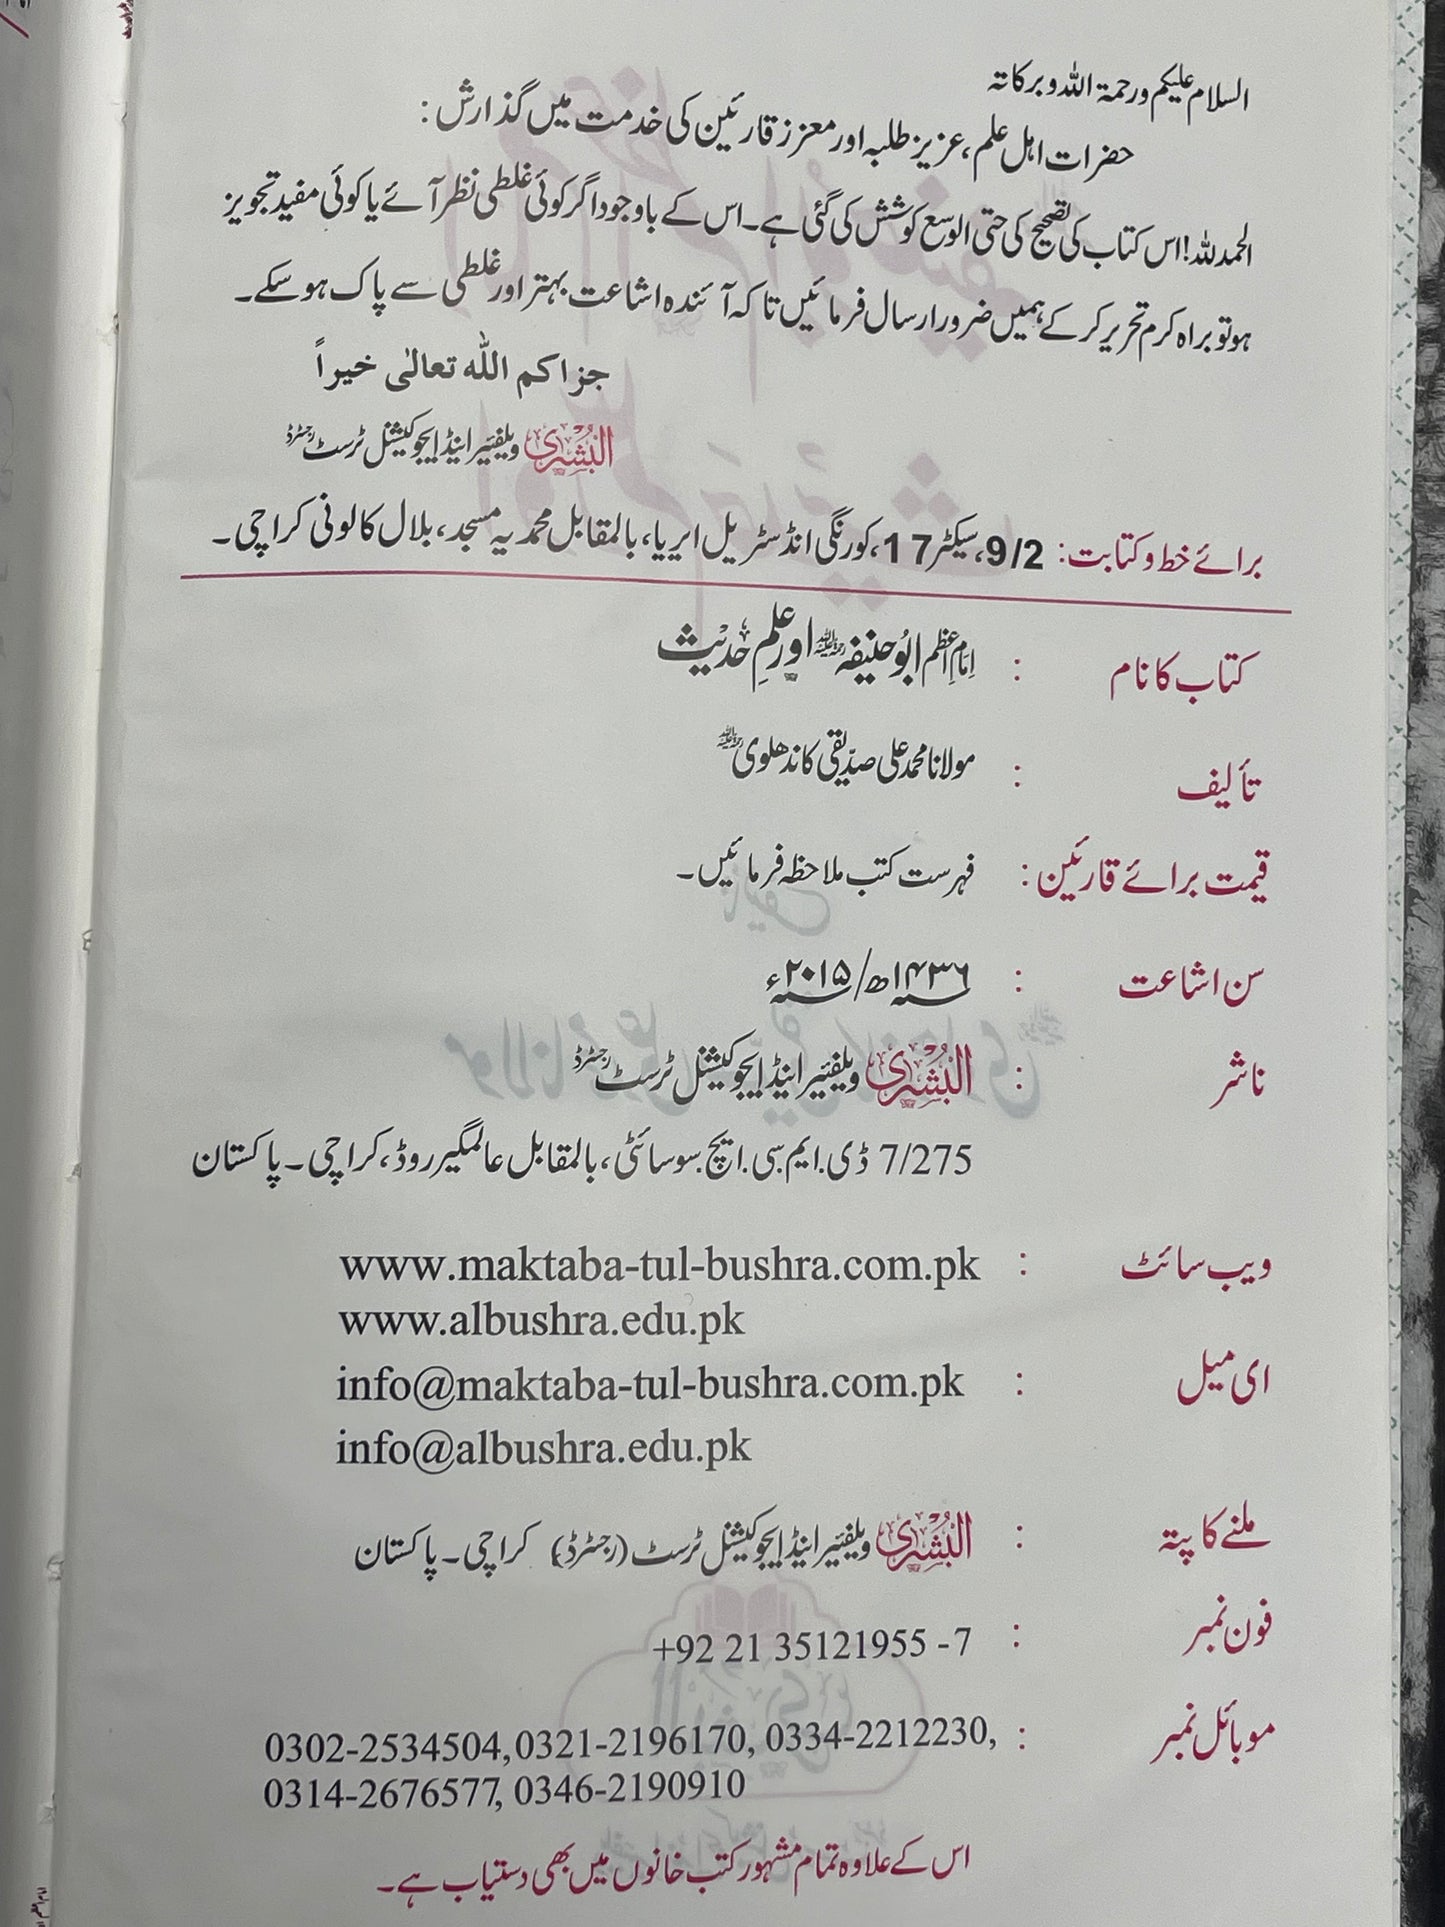 السلام علیکم ورحمۃ اللہ وبرکاتہ
حضرات اہل علم، عزیز طلبہ اور معزز قارئین کی خدمت میں گذارش:
الحمدللہ! اس کتاب کی تصحیح کی حتی الوسع کوشش کی گئی ہے۔ اس کے باوجود اگر کوئی غلطی نظر آئے یا کوئی مفید تجویز
ہو تو براہ کرم تحریر کر کے ہمیں ضرور ارسال فرمائیں تاکہ آئندہ اشاعت بہتر اور غلطی سے پاک ہوسکے۔
جزاکم اللہ تعالٰی خیراً
البُشریٰ ویلفیئر اینڈ ایجوکیشنل ٹرسٹ رجسٹرڈ
برائے خط وکتابت: 9/2، سیکٹر 17، کورنگی انڈسٹریل ایریا، بالمقابل محمدیہ مسجد، بلال کالونی کراچی۔
کتاب کا نام : اِمَامِ اعظم ابُو حنیفہ رحمۃ اللہ علیہ اور علمِ حَدیث
تألیف : مولانا محمد علی صدّیقی کاندھلوی رحمۃ اللہ علیہ
قیمت برائے قارئین: فہرست کتب ملاحظہ فرمائیں۔
سن اشاعت : ۱۴۳۶ھ/ ۲۰۱۵ء
ناشر : البُشریٰ ویلفیئر اینڈ ایجوکیشنل ٹرسٹ رجسٹرڈ
7/275 ڈی.ایم.سی.ایچ.سوسائٹی، بالمقابل عالمگیر روڈ، کراچی۔ پاکستان
ویب سائٹ : www.maktaba-tul-bushra.com.pk
www.albushra.edu.pk
ای میل : info@maktaba-tul-bushra.com.pk
info@albushra.edu.pk
ملنے کا پتہ : البُشریٰ ویلفیئر اینڈ ایجوکیشنل ٹرسٹ (رجسٹرڈ) کراچی۔ پاکستان
فون نمبر : +92 21 35121955 -7
موبائل نمبر : 0302-2534504, 0321-2196170, 0334-2212230,
0314-2676577, 0346-2190910
اس کے علاوہ تمام مشہور کتب خانوں میں بھی دستیاب ہے۔